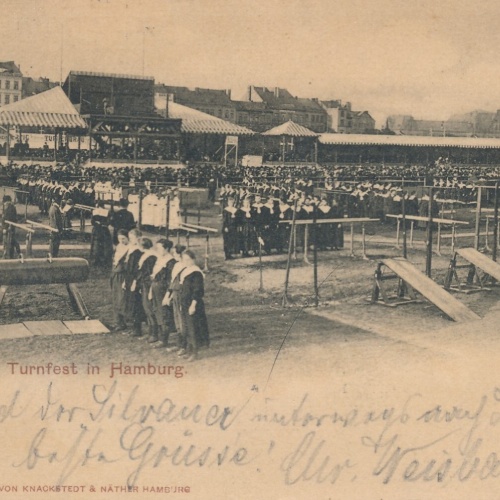 Turnfest in Hamburg.
d der Silvana unterwegs nach
beste Grüsse! Uhr
VON KNACKSTEDT & NÄTHER HAMBURG